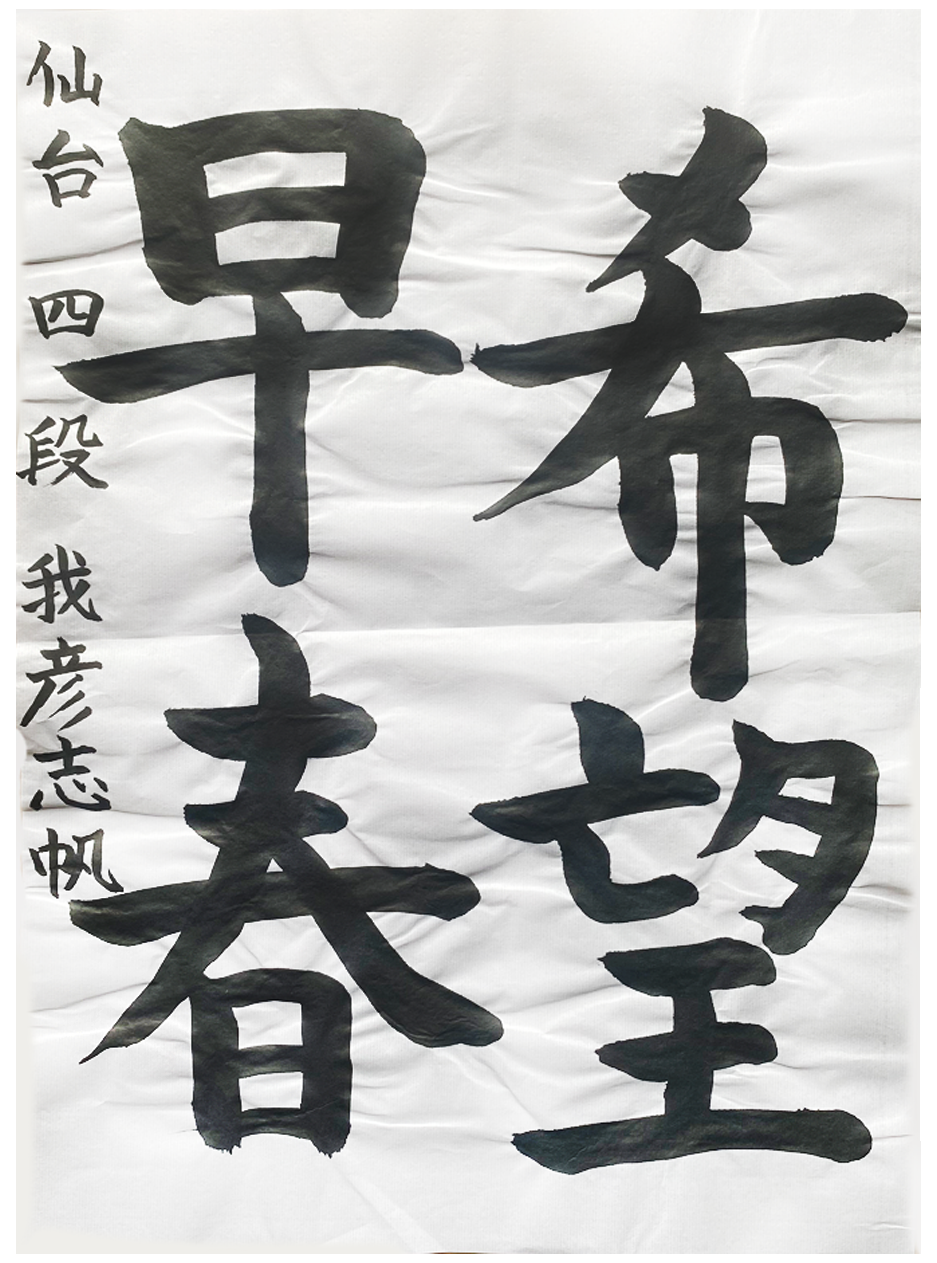 希望
早春
仙台 四段 我彦志帆